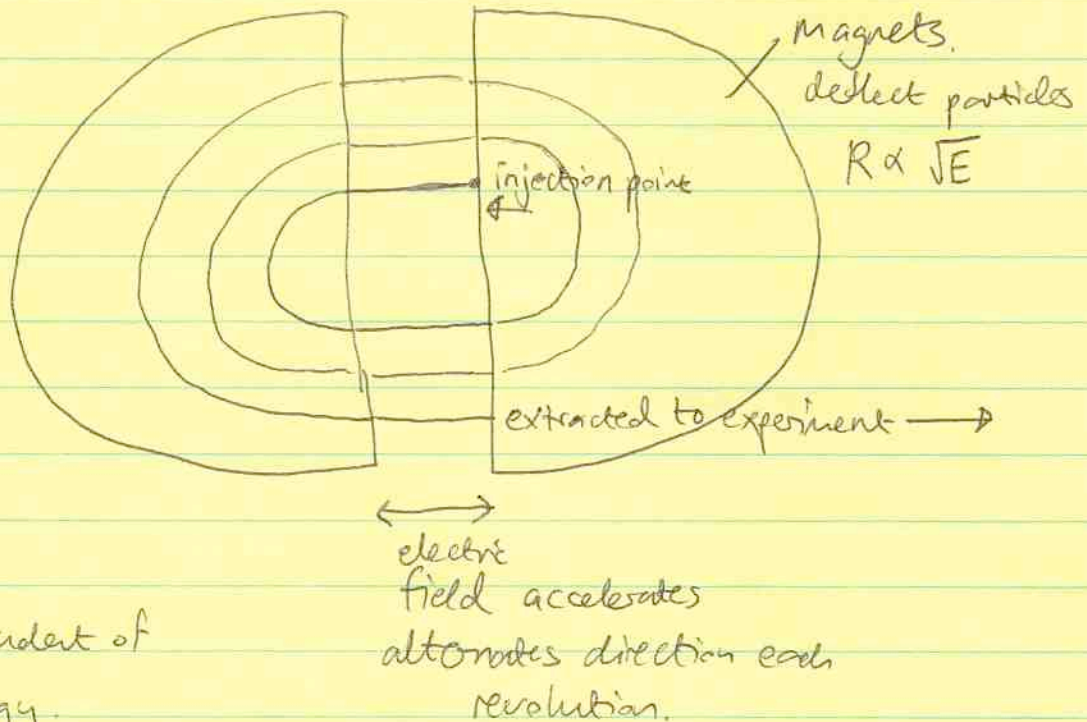 magnets.
deflect particles
R ∝ √E
injection point
extracted to experiment
electric
field accelerates
alternates direction each
revolution.
of